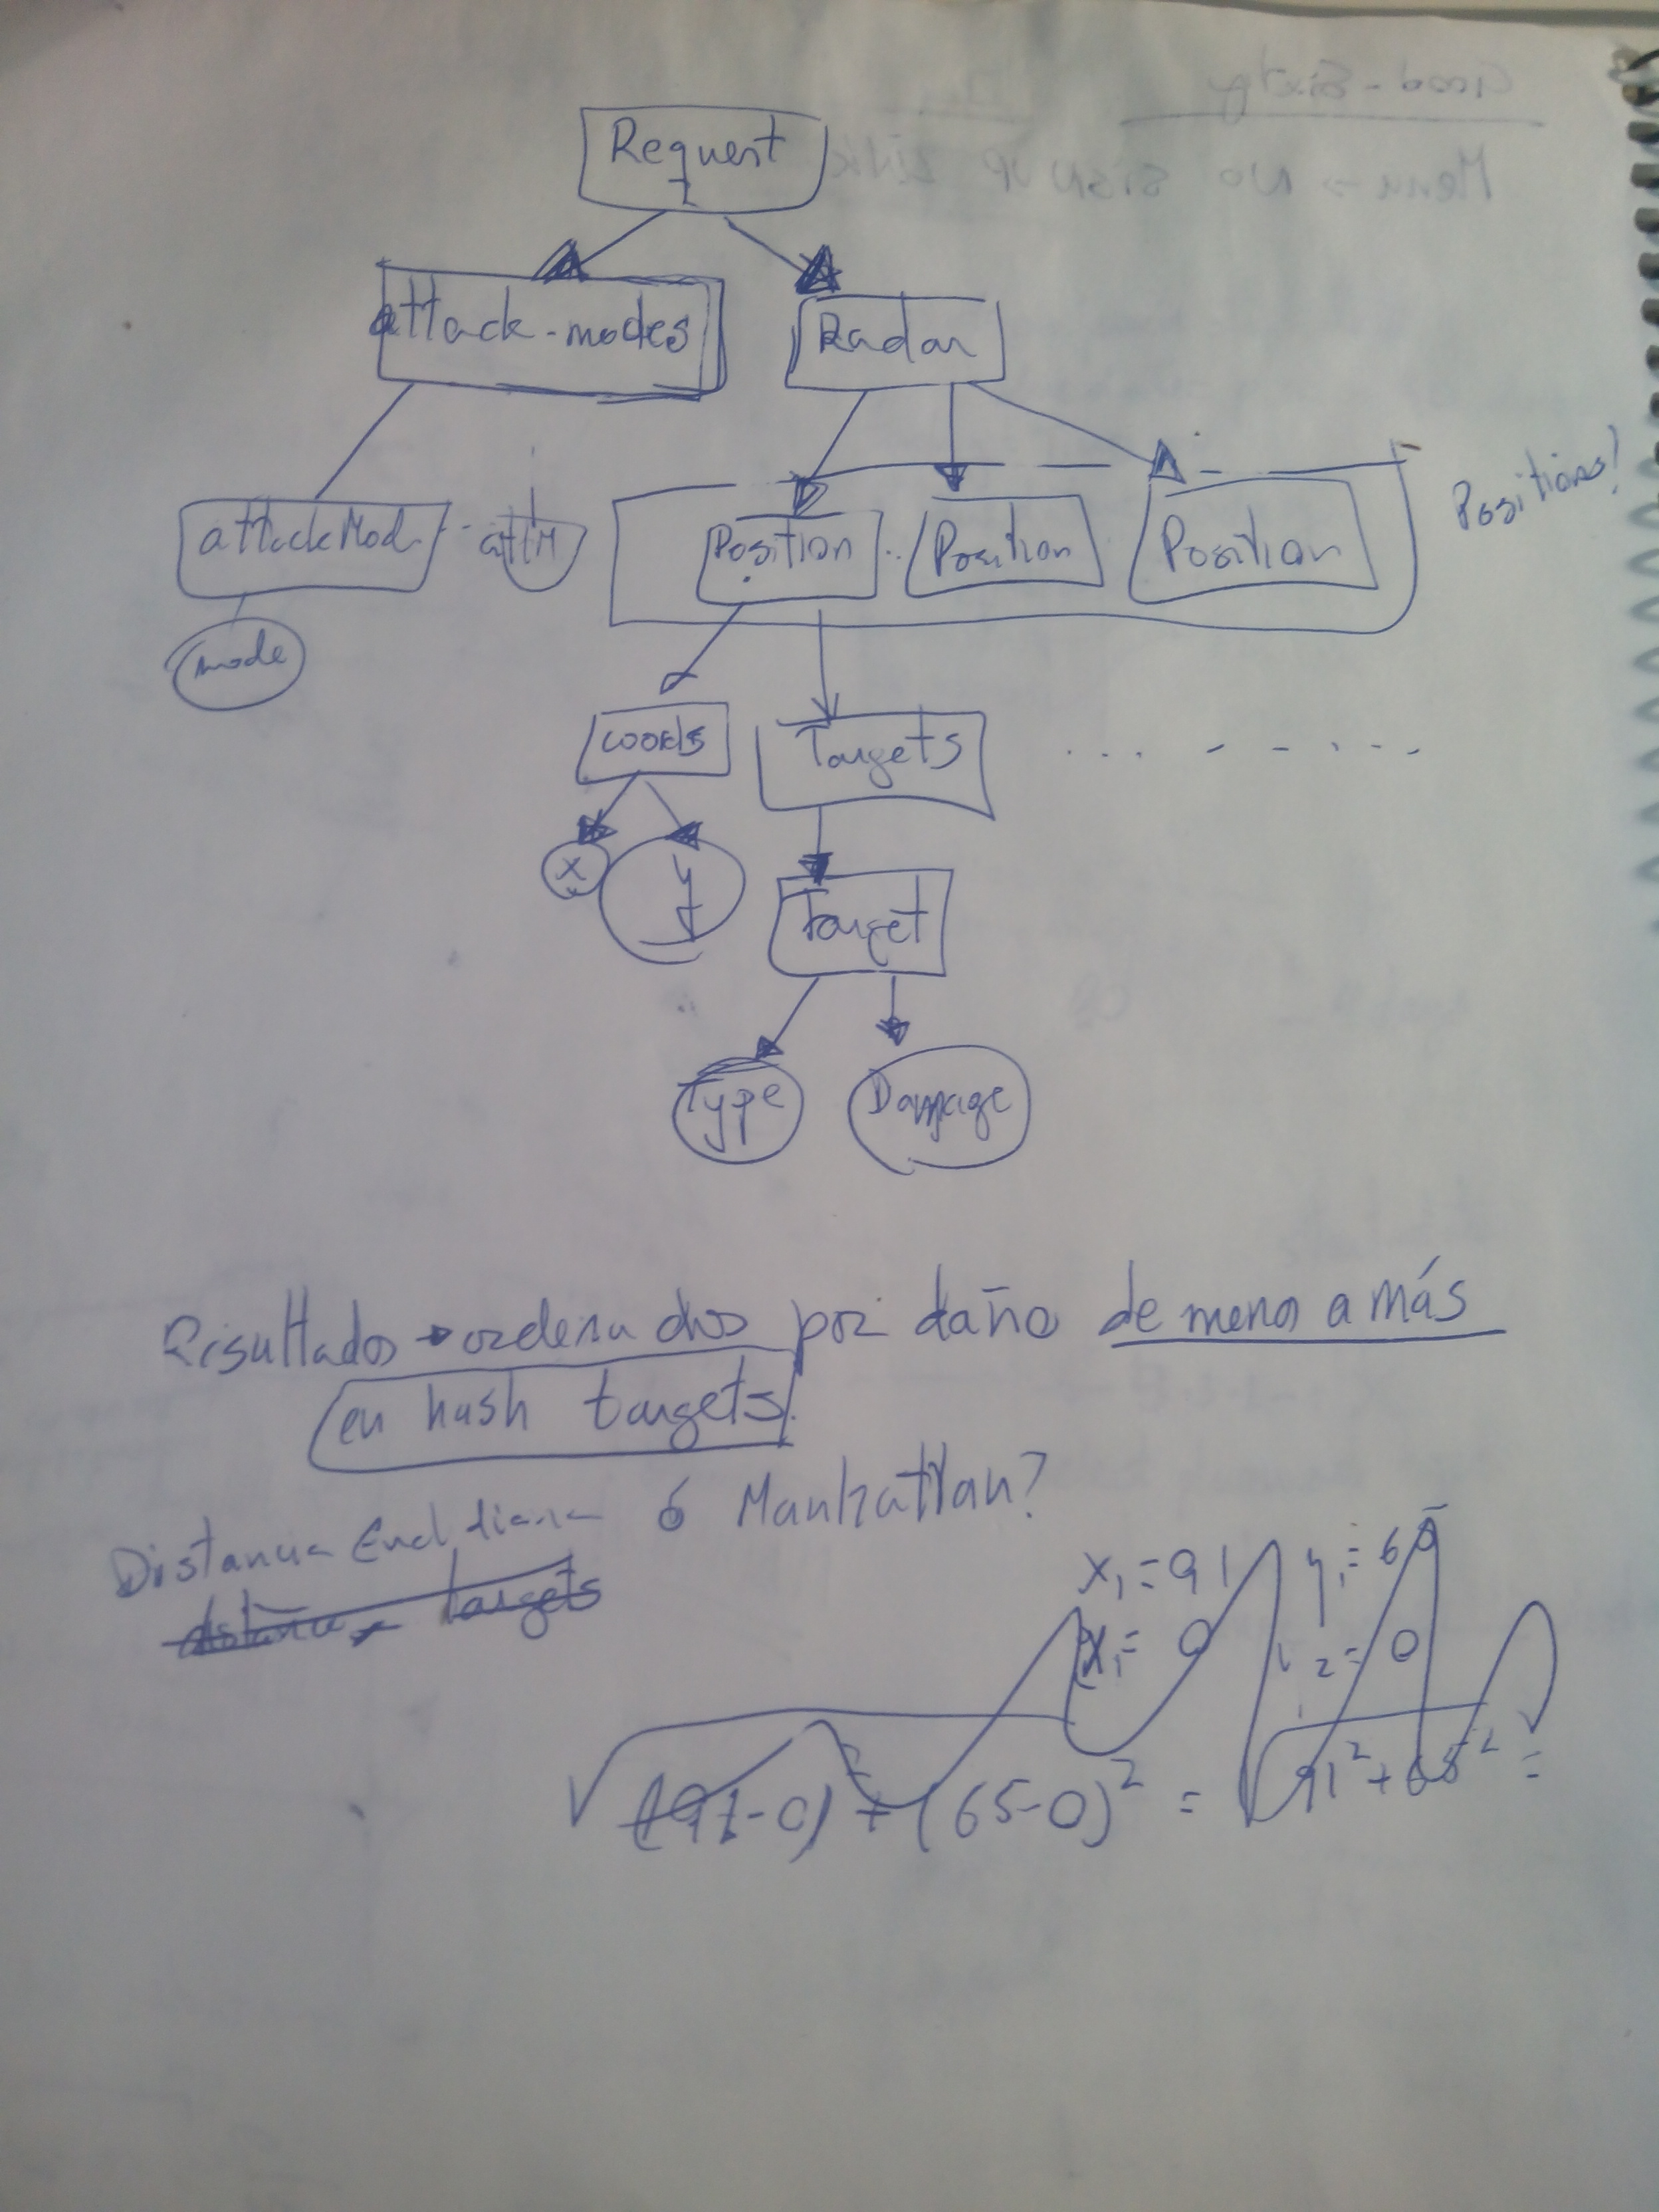 Request
attack-modes
Radar
Positions!
attackMod
attM
Position
Position
Position
mode
coords
Targets
x
y
Target
Type
Damage
Resultados → ordenados por daño de menos a más
en hash targets
Distancia Euclidiana ó Manhattan?
distancia targets
x₁ = 91 y₁ = 65
x₁ = 0 2 = 0
√(91-0)² + (65-0)² = √91² + 65² =